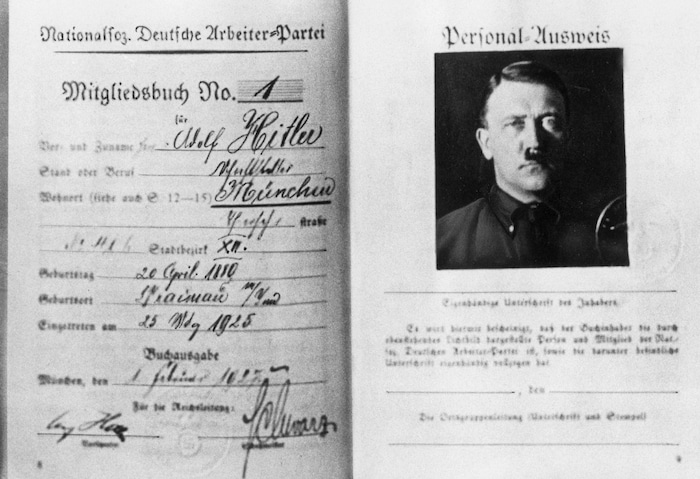 Nationalsoz. Deutsche Arbeiter=Partei
Mitgliedsbuch No. 1
für
Vor= und Zuname Adolf Hitler
Stand oder Beruf
Wohnort (siehe auch S. 12—15) München
straße
Stadtbezirk XII.
Geburtstag 20 April
Geburtsort
Eingetreten am 25 1925
Buchausgabe
München, den 1 Februar 1927
Für die Reichsleitung:
Schwarz
8
Personal=Ausweis
Eigenhändige Unterschrift des Inhabers.
Es wird hiermit bescheinigt, daß der Buchinhaber die durch
obenstehendes Lichtbild dargestellte Person und Mitglied der Nat.=
soz. Deutschen Arbeiter=Partei ist, sowie die darunter befindliche
Unterschrift eigenhändig vollzogen hat.
, den
Die Ortsgruppenleitung (Unterschrift und Stempel)
9